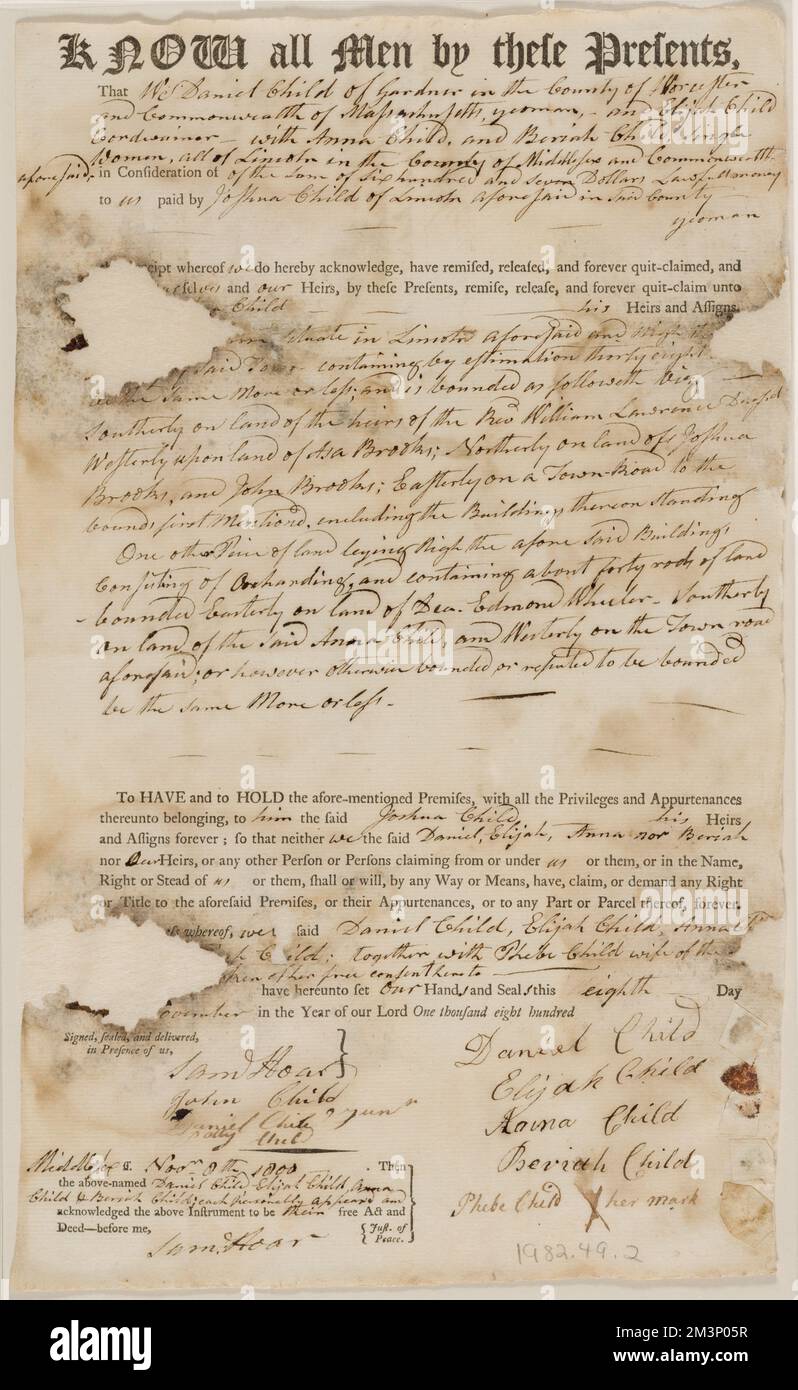 KNOW all Men by theſe Preſents,
That We Daniel Child of Gardner in the County of Worcester
and Commonwealth of Maſsachusetts, yeoman, - and Elijah Child
Cordwainer - with Anna Child, and Beriah Child Single
Women, all of Lincoln in the County of Middlesex and Commonwealth
aforesaid, in Conſideration of of the Sum of Six hundred and seven Dollars Lawfull money
to us paid by Joshua Child of Lincoln aforesaid in said County
yeoman
whereof we do hereby acknowledge, have remiſed, releaſed, and forever quit-claimed, and
and our Heirs, by theſe Preſents, remiſe, releaſe, and forever quit-claim unto
Child his Heirs and Aſſigns.
situate in Lincoln aforesaid and
said Town containing by estimation thirty eight
be the same More or leſs, and is bounded as followeth viz
Southerly on land of the heirs of the Revd William Lawrence
Westerly upon land of Asa Brooks; Northerly on land of Joshua
Brooks, and John Brooks; Easterly on a Town-Road to the
bounds first Mentiond, including the Buildings thereon Standing
One other Peice of land leying Nigh the afore Said Buildings
Consisting of Orcharding, and containing about forty rods of land
- bounded Easterly on land of Dea. Edmond Wheeler - Southerly
on land of the said Anna Child, and Westerly on the Town road
aforesaid; or however otherwise bounded or reputed to be bounded
be the same More or leſs -
To HAVE and to HOLD the afore-mentioned Premiſes, with all the Privileges and Appurtenances
thereunto belonging, to him the ſaid Joshua Child his Heirs
and Aſſigns forever; ſo that neither we the ſaid Daniel, Elijah, Anna nor Beriah
nor Our Heirs, or any other Perſon or Perſons claiming from or under us or them, or in the Name,
Right or Stead of us or them, ſhall or will, by any Way or Means, have, claim, or demand any Right
or Title to the aforeſaid Premiſes, or their Appurtenances, or to any Part or Parcel thereof, forever.
whereof, we ſaid Daniel Child, Elijah Child, Anna
together with Phebe Child wife of the
free consent hereto
have hereunto ſet Our Hands and Seals this eighth Day
in the Year of our Lord One thouſand eight hundred
Signed, ſealed, and delivered,
in Preſence of us,
Saml Hoar
John Child
Daniel Child
Daniel Child
Elijah Child
Anna Child
Beriah Child
Phebe Child X her mark
Middlesex ſſ. Novr 8th 1800. Then
the above-named Daniel Child, Elijah Child, Anna
Child & Beriah Child each personally appeard and
acknowledged the above Inſtrument to be their free Act and
Deed—before me, {Juſt. of Peace.
Saml Hoar
1982.49.2
alamy
alamy
Image ID: 2M3P05R
www.alamy.com